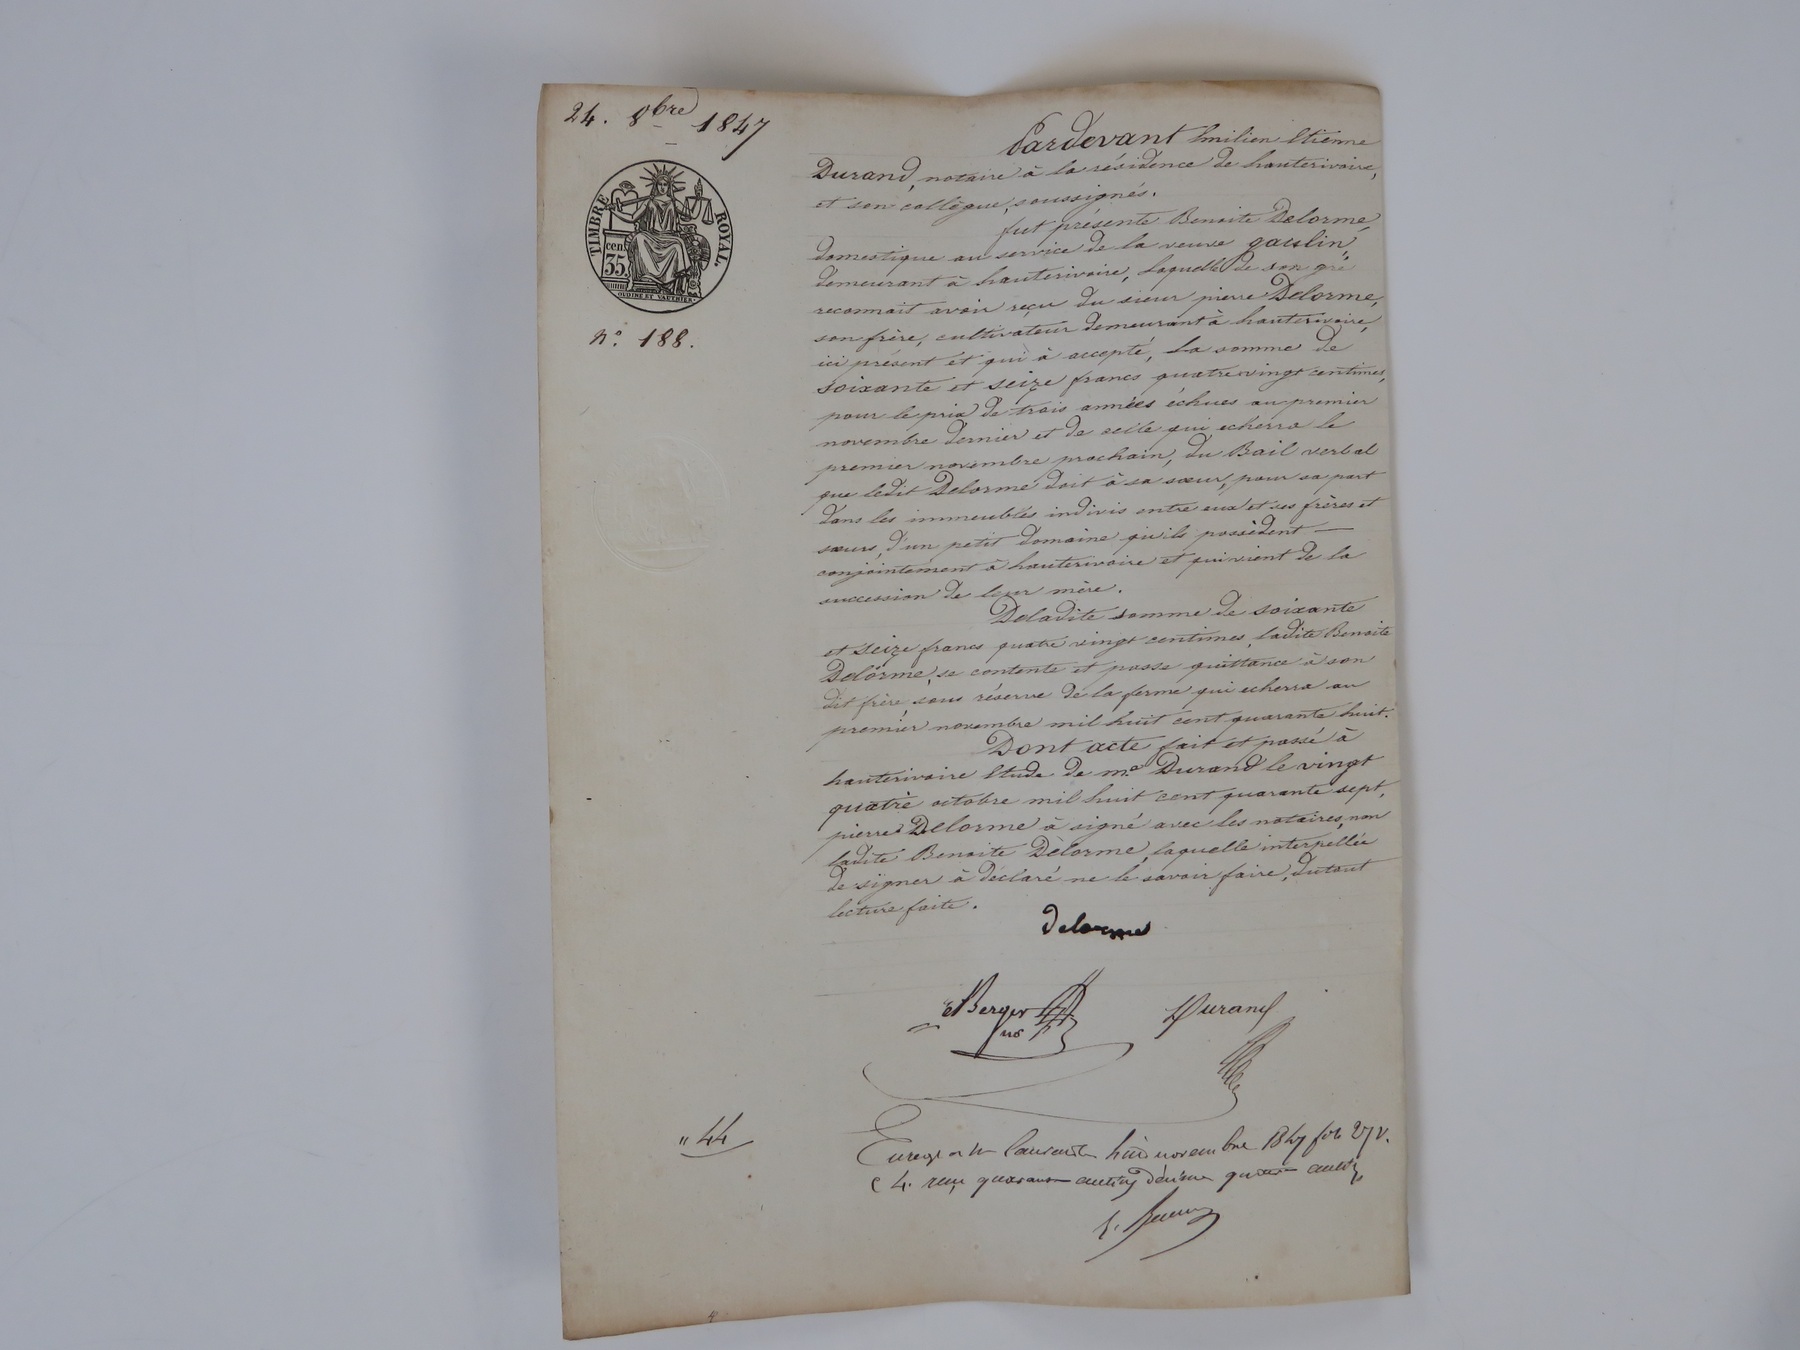 24. 8bre 1847
TIMBRE ROYAL.
cen
35.
OUDINÉ ET VAUTHIER.
n.º 188.
Pardevant Emilien Etienne
Durand, notaire à la résidence de hauterivoire,
et son collègue, soussignés.
fut présente Benoite Delorme,
domestique au service de la veuve goulin,
demeurant à hauterivoire, laquelle de son gré
reconnait avoir reçu du sieur pierre Delorme,
son frère, cultivateur demeurant à hauterivoire,
ici présent et qui à accepté, la somme de
soixante et seize francs quatre vingt centimes,
pour le prix de trois années échues au premier
novembre dernier et de celle qui echerra le
premier novembre prochain, du Bail verbal
que ledit Delorme doit à sa sœur, pour sa part
dans les immeubles indivis entre eux et ses frères et
sœurs, d'un petit domaine qu'ils possèdent —
conjointement à hauterivoire et qui vient de la
succession de leur mère.
De ladite somme de soixante
et seize francs quatre vingt centimes, ladite Benoite
Delorme, se contente et passe quittance à son
dit frère, sous réserve de la ferme qui echerra au
premier novembre mil huit cent quarante huit.
Dont acte fait et passé à
hauterivoire Etude de me Durand le vingt
quatre octobre mil huit cent quarante sept,
pierre Delorme à signé avec les notaires, non
ladite Benoite Delorme, laquelle interpellée
de signer à déclaré ne le savoir faire, dutout
lecture faite.
Delorme
Berger
Durand
" 44
huit novembre 1847 fol. 27 v.
c 4. reçu quarante centimes décime quatre centimes